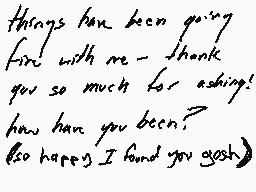 things have been going
fine with me - thank
you so much for asking!
how have you been?
(so happy I found you gosh)